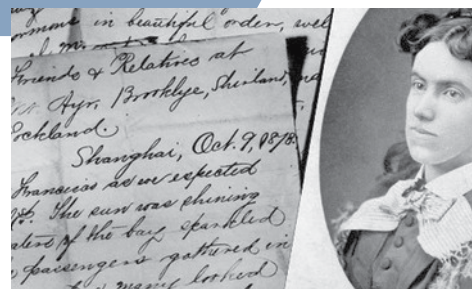 ormons in beautiful order, wel
Friends & Relatives at
Ayr, Brooklye, Shirland,
Rockland.
Shanghai, Oct. 9, 1878.
Francisco as we expected
The sun was shining
waters of the bay sparkled
passengers gathered in
many looked